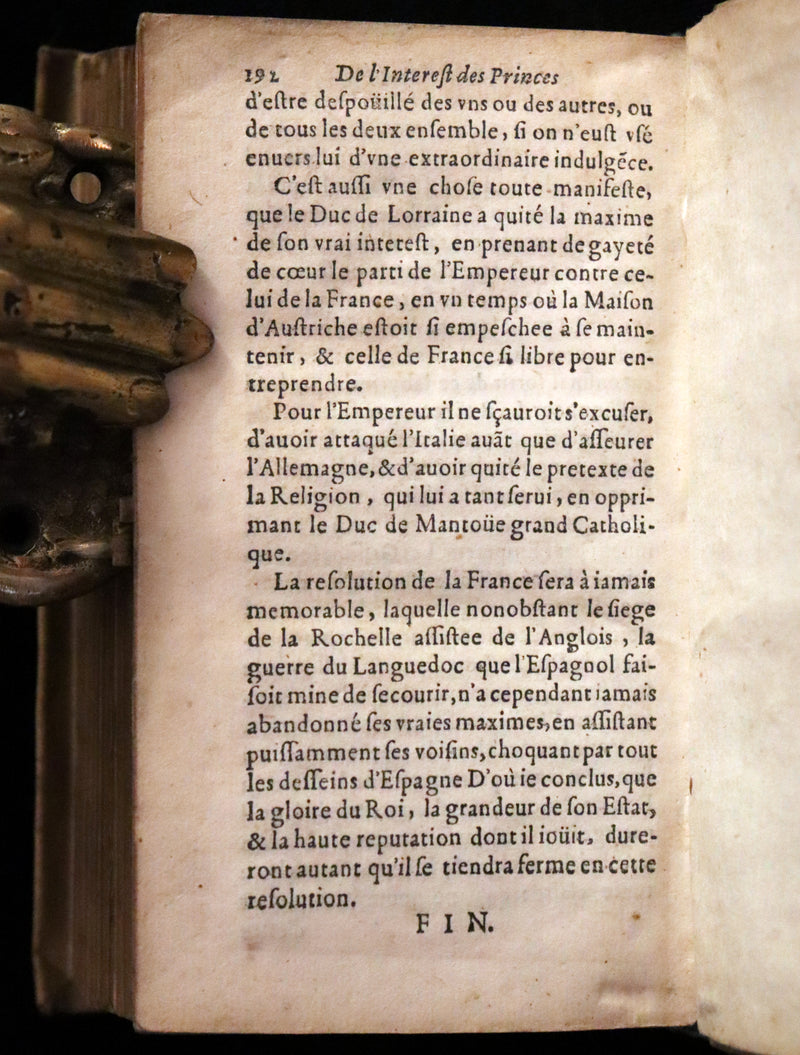 192 De l'Intereſt des Princes
d'eſtre deſpoüillé des vns ou des autres, ou
de tous les deux enſemble, ſi on n'euſt vſé
enuers lui d'vne extraordinaire indulgẽce.
C'eſt auſſi vne choſe toute manifeſte,
que le Duc de Lorraine a quité la maxime
de ſon vrai inteteſt, en prenant de gayeté
de cœur le parti de l'Empereur contre ce-
lui de la France, en vn temps où la Maiſon
d'Auſtriche eſtoit ſi empeſchee à ſe main-
tenir, & celle de France ſi libre pour en-
treprendre.
Pour l'Empereur il ne ſçauroit s'excuſer,
d'auoir attaqué l'Italie auãt que d'aſſeurer
l'Allemagne, & d'auoir quité le pretexte de
la Religion, qui lui a tant ſerui, en oppri-
mant le Duc de Mantoüe grand Catholi-
que.
La reſolution de la France ſera à iamais
memorable, laquelle nonobſtant le ſiege
de la Rochelle aſſiſtee de l'Anglois, la
guerre du Languedoc que l'Eſpagnol fai-
ſoit mine de ſecourir, n'a cependant iamais
abandonné ſes vraies maximes, en aſſiſtant
puiſſamment ſes voiſins, choquant par tout
les deſſeins d'Eſpagne D'où ie conclus, que
la gloire du Roi, la grandeur de ſon Eſtat,
& la haute reputation dont il ioüit, dure-
ront autant qu'il ſe tiendra ferme en cette
reſolution.
FIN.